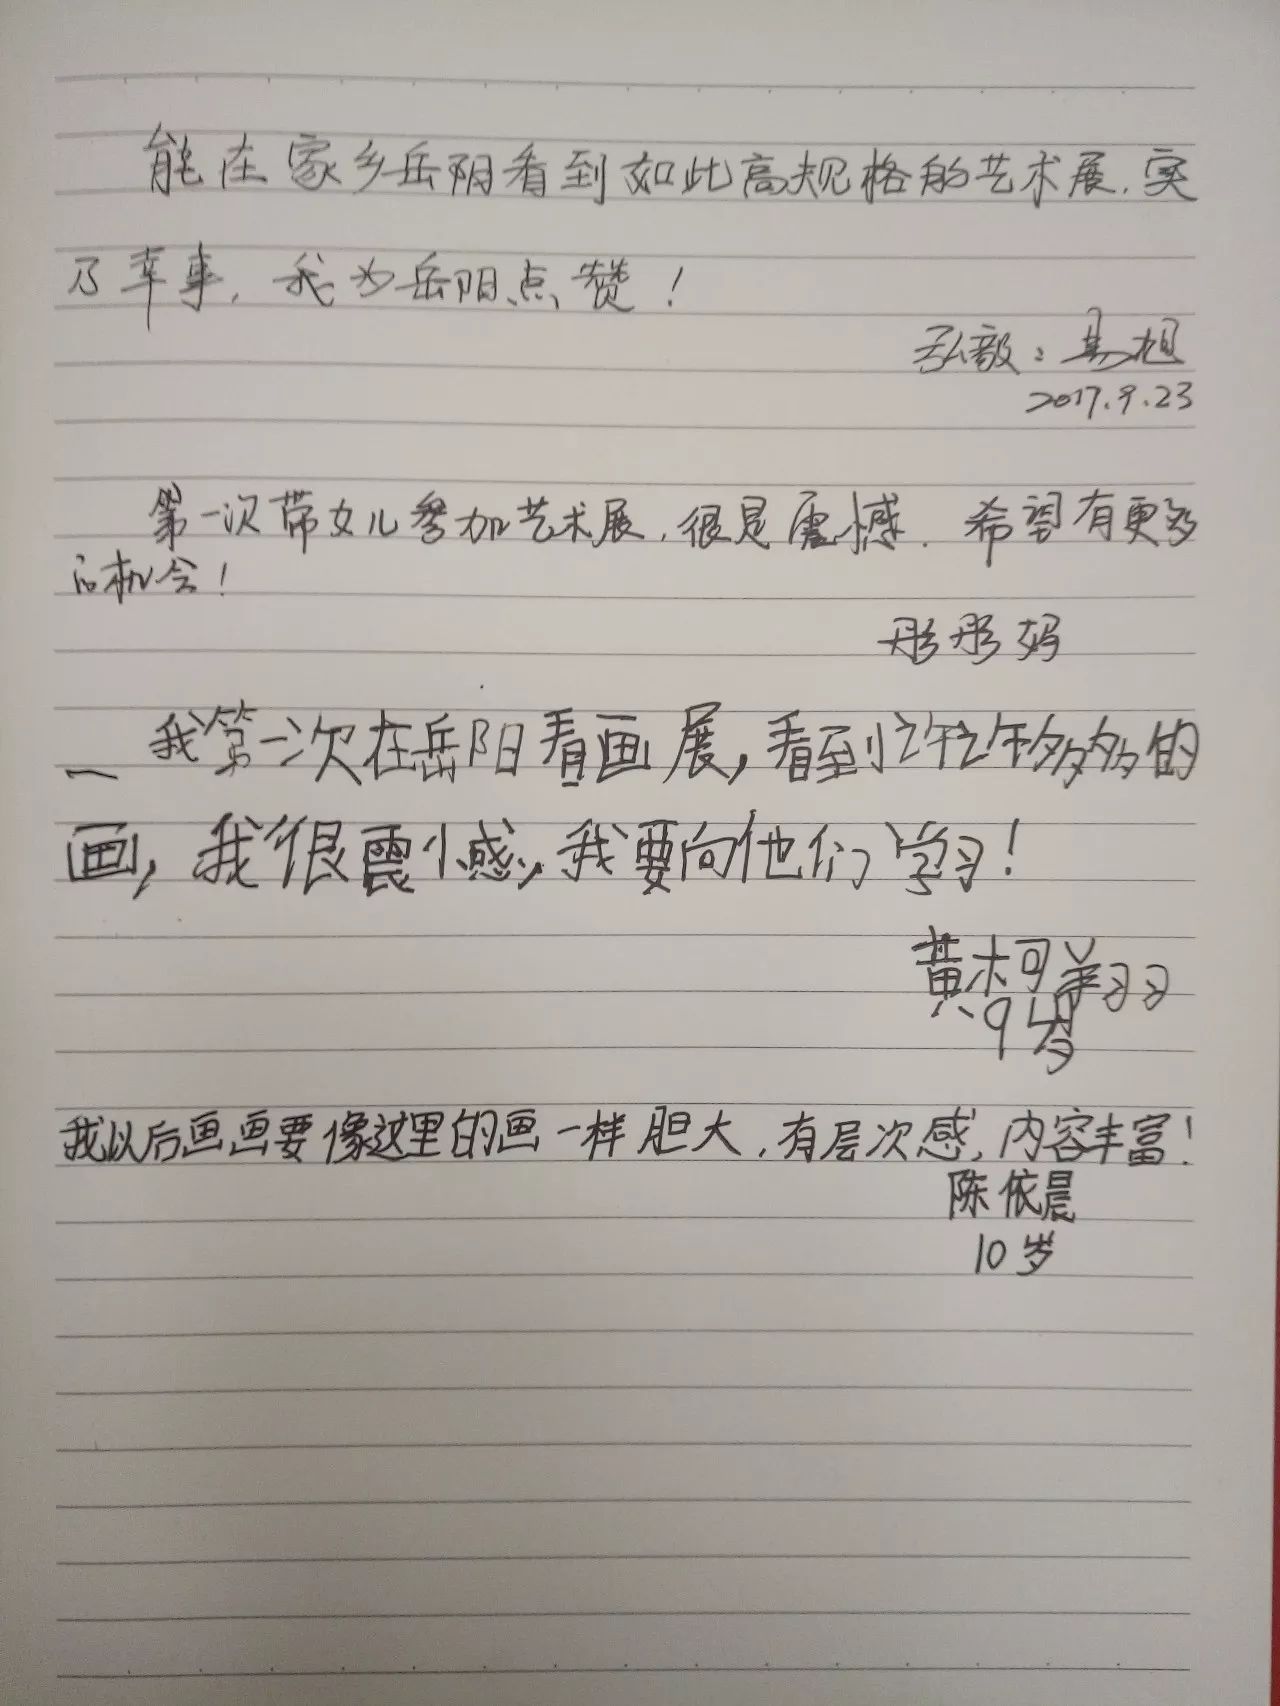 能在家乡岳阳看到如此高规格的艺术展,实
乃幸事,我为岳阳点赞!
弘毅:易旭
2017.9.23
第一次带女儿参加艺术展,很是震憾.希望有更多
的机会!
彤彤妈
我第一次在岳阳看画展,看到许许多多的
画,我很震憾,我要向他们学习!
黄柯翔
9岁
我以后画画要像这里的画一样胆大,有层次感,内容丰富!
陈依晨
10岁